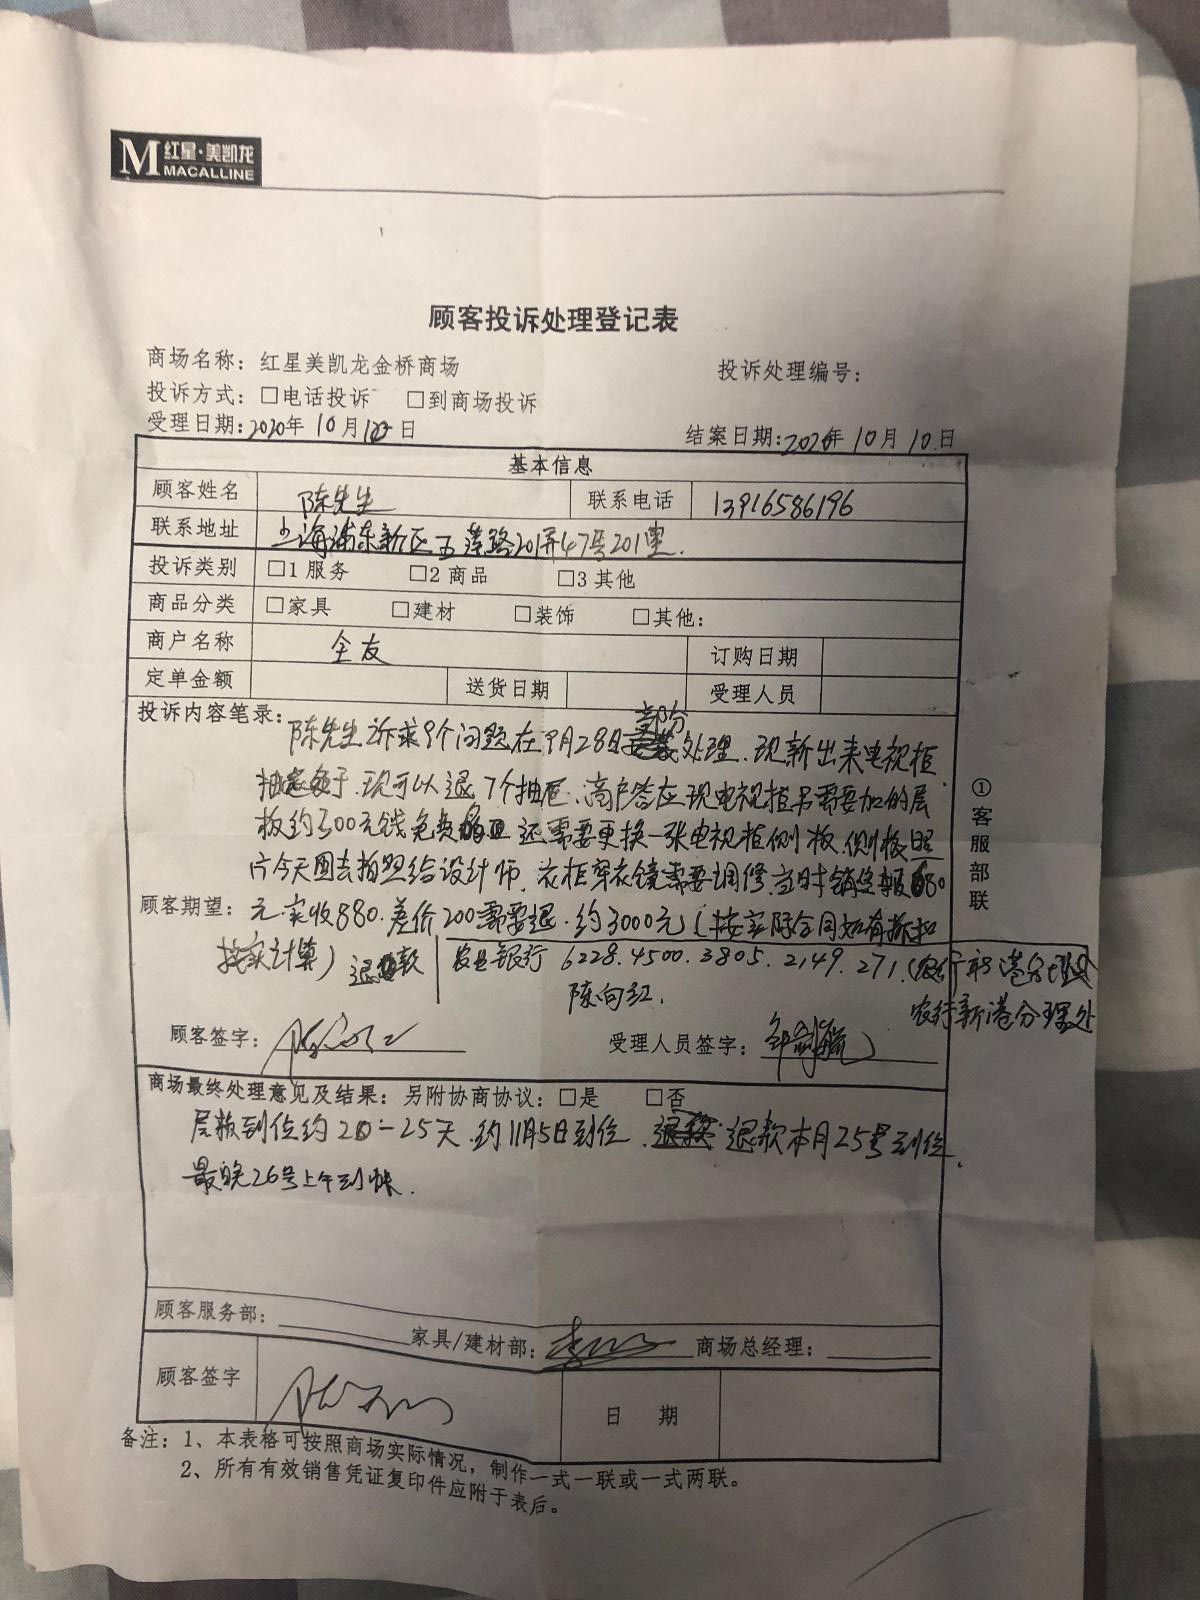 M 红星·美凯龙
MACALLINE
顾客投诉处理登记表
商场名称：红星美凯龙金桥商场 投诉处理编号：
投诉方式：□电话投诉 □到商场投诉
受理日期：2020年10月10日 结案日期：2020年10月10日
基本信息
顾客姓名 陈先生 联系电话 13916586196
联系地址 上海浦东新区五莲路201弄47号201室.
投诉类别 □1服务 □2商品 □3其他
商品分类 □家具 □建材 □装饰 □其他：
商户名称 全友 订购日期
定单金额 送货日期 受理人员
投诉内容笔录：陈先生诉求9个问题在9月28日部分处理．现新出来电视柜
现可以退7个抽屉．商户答应现电视柜另需要加的层
板约300元钱免费 还需要更换一张电视柜侧板．侧板照
片今天回去拍照给设计师．衣柜穿衣镜需要调修．当时销售报680
顾客期望：元．实收880．差价200需要退．约3000元（按实际合同如有折扣
按实计算）退款 农业银行 6228.4500.3805.2149.271.（农行新港分理处
陈向红． 农行新港分理处
顾客签字： 受理人员签字：
商场最终处理意见及结果：另附协商协议：□是 □否
层板到位约20-25天．约11月5日到位．退款本月25号到位．
最晚26号上午到帐．
顾客服务部： 家具/建材部： 商场总经理：
顾客签字 日 期
备注：1、本表格可按照商场实际情况，制作一式一联或一式两联。
2、所有有效销售凭证复印件应附于表后。
①客服部联